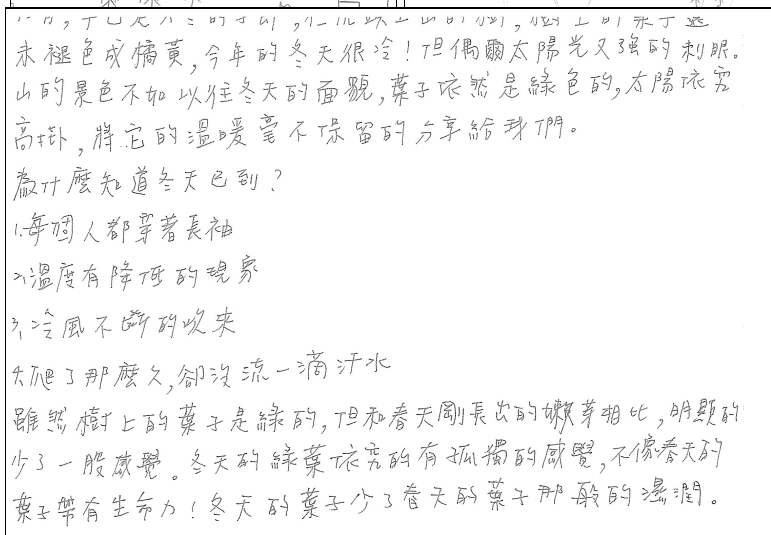 早已是入冬的季節,在虎頭上山的樹,樹上的葉子還
未褪色成橘黃,今年的冬天很冷!但偶爾太陽光又強的刺眼。
山的景色不如以往冬天的面貌,葉子依然是綠色的,太陽依究
高掛,將它的溫暖毫不保留的分享給我們。
為什麼知道冬天已到?
1.每個人都穿著長袖
2.溫度有降低的現象
3.冷風不斷的吹來
4.爬了那麼久,卻沒流一滴汗水
雖然樹上的葉子是綠的,但和春天剛長出的嫩芽相比,明顯的
少了一股感覺。冬天的綠葉依究的有孤獨的感覺,不像春天的
葉子帶有生命力!冬天的葉子少了春天的葉子那般的濕潤。